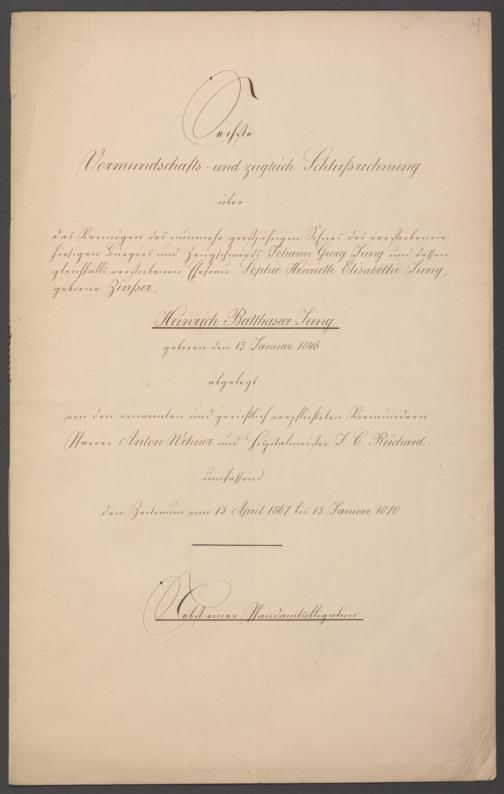 Sechste
Vormundschafts- und zugleich Schlußrechnung
über
das Vermögen des nunmehr großjährigen Sohnes des verstorbenen
hiesigen Bürgers und Zeugschmieds Johann Georg Jung und dessen
gleichfalls verstorbenen Ehefrau Sophie Henriette Elisabethe Jung,
geborene Zinsser,
Heinrich Balthasar Jung
geboren den 13 Januar 1846
abgelegt
von den ernannten und gerichtlich verpflichteten Vormündern
Pfarrer Anton Wehner und Hospitalmeister J. C. Reichard.
umfassend
den Zeitraum vom 13 April 1867 bis 13 Januar 1870
Nebst einer Pfandamtsobligation